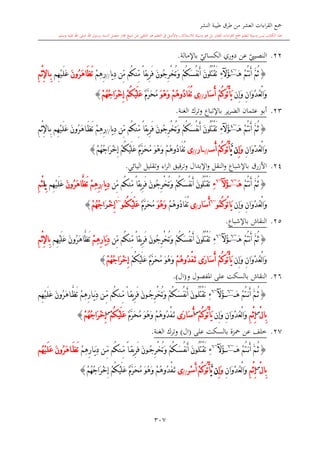 جمع القراءات العشر من طرق طيبة النشر
٢٢. النصيبيّ عن دوري الكسائيّ بالإمالة.
﴿ ثُمَّ أَنتُمْ هَـٰٓؤُلَآءِ تَقْتُلُونَ أَنفُسَكُمْ وَتُخْرِجُونَ فَرِيقًا مِّنكُم مِّن دِيَـٰرِهِمْ تَظَـٰهَرُونَ عَلَيْهِم بِالْإِثْمِ
وَالْعُدْوَانِ وَإِن يَأْتُوكُمْ أُسَـٰرَىٰ تُفَـٰدُوهُمْ وَهْوَ مُحَرَّمٌ عَلَيْكُمْ إِخْرَاجُهُمْ ﴾
٢٣. أبو عثمان الضرير بالإتباع وترك الغنة.
﴿ ثُمَّ أَنتُمْ هَـٰٓؤُلَآءِ تَقْتُلُونَ أَنفُسَكُمْ وَتُخْرِجُونَ فَرِيقًا مِّنكُم مِّن دِيَـٰرِهِمْ تَظَـٰهَرُونَ عَلَيْهِم بِالْإِثْمِ
وَالْعُدْوَانِ وَإِن يَأْتُوكُمْ أُسَـٰرَىٰ تُفَـٰدُوهُمْ وَهْوَ مُحَرَّمٌ عَلَيْكُمْ إِخْرَاجُهُمْ ﴾
٢٤. الأزرق بالإشباع والنقل والإبدال وترقيق الراء وتقليل اليائي.
﴿ ثُمَّ أَنتُمْ هَـٰٓؤُلَآءِ تَقْتُلُونَ أَنفُسَكُمْ وَتُخْرِجُونَ فَرِيقًا مِّنكُم مِّن دِيَـٰرِهِمْ تَظَّـٰهَرُونَ عَلَيْهِم بِالِثْمِ
وَالْعُدْوَانِ وَإِن يَاتُوكُمُۥٓ أُسَـٰرَىٰ تُفَـٰدُوهُمْ وَهُوَ مُحَرَّمٌ عَلَيْكُمُۥٓ إِخْرَاجُهُمْ ﴾
٢٥. النقاش بالإشباع.
﴿ ثُمَّ أَنتُمْ هَـٰٓؤُلَآءِ تَقْتُلُونَ أَنفُسَكُمْ وَتُخْرِجُونَ فَرِيقًا مِّنكُم مِّن دِيَـٰرِهِمْ تَظَّـٰهَرُونَ عَلَيْهِم بِالْإِثْمِ
وَالْعُدْوَانِ وَإِن يَأْتُوكُمْ أُسَـٰرَىٰ تَفْدُوهُمْ وَهُوَ مُحَرَّمٌ عَلَيْكُمْ إِخْرَاجُهُمْ ﴾
٢٦. النقاش بالسكت على المفصول و(ال).
﴿ ثُمَّ أَنتُمْ هَـٰٓؤُلَآءِ تَقْتُلُونَ أَنفُسَكُمْ وَتُخْرِجُونَ فَرِيقًا مِّنكُم مِّن دِيَـٰرِهِمْ تَظَّـٰهَرُونَ عَلَيْهِم
بِالْإِثْمِ وَالْعُدْوَانِ وَإِن يَأْتُوكُمْ أُسَـٰرَىٰ تَفْدُوهُمْ وَهُوَ مُحَرَّمٌ عَلَيْكُمْ إِخْرَاجُهُمْ ﴾
٢٧. خلف عن حمزة بالسكت على (ال) وترك الغنة.
﴿ ثُمَّ أَنتُمْ هَـٰٓؤُلَآءِ تَقْتُلُونَ أَنفُسَكُمْ وَتُخْرِجُونَ فَرِيقًا مِّنكُم مِّن دِيَـٰرِهِمْ تَظَـٰهَرُونَ عَلَيْهُم
بِالْإِثْمِ وَالْعُدْوَانِ وَإِن يَأْتُوكُمْ أَسْرَىٰ تَفْدُوهُمْ وَهُوَ مُحَرَّمٌ عَلَيْكُمْ إِخْرَاجُهُمْ ﴾
٣٠٧